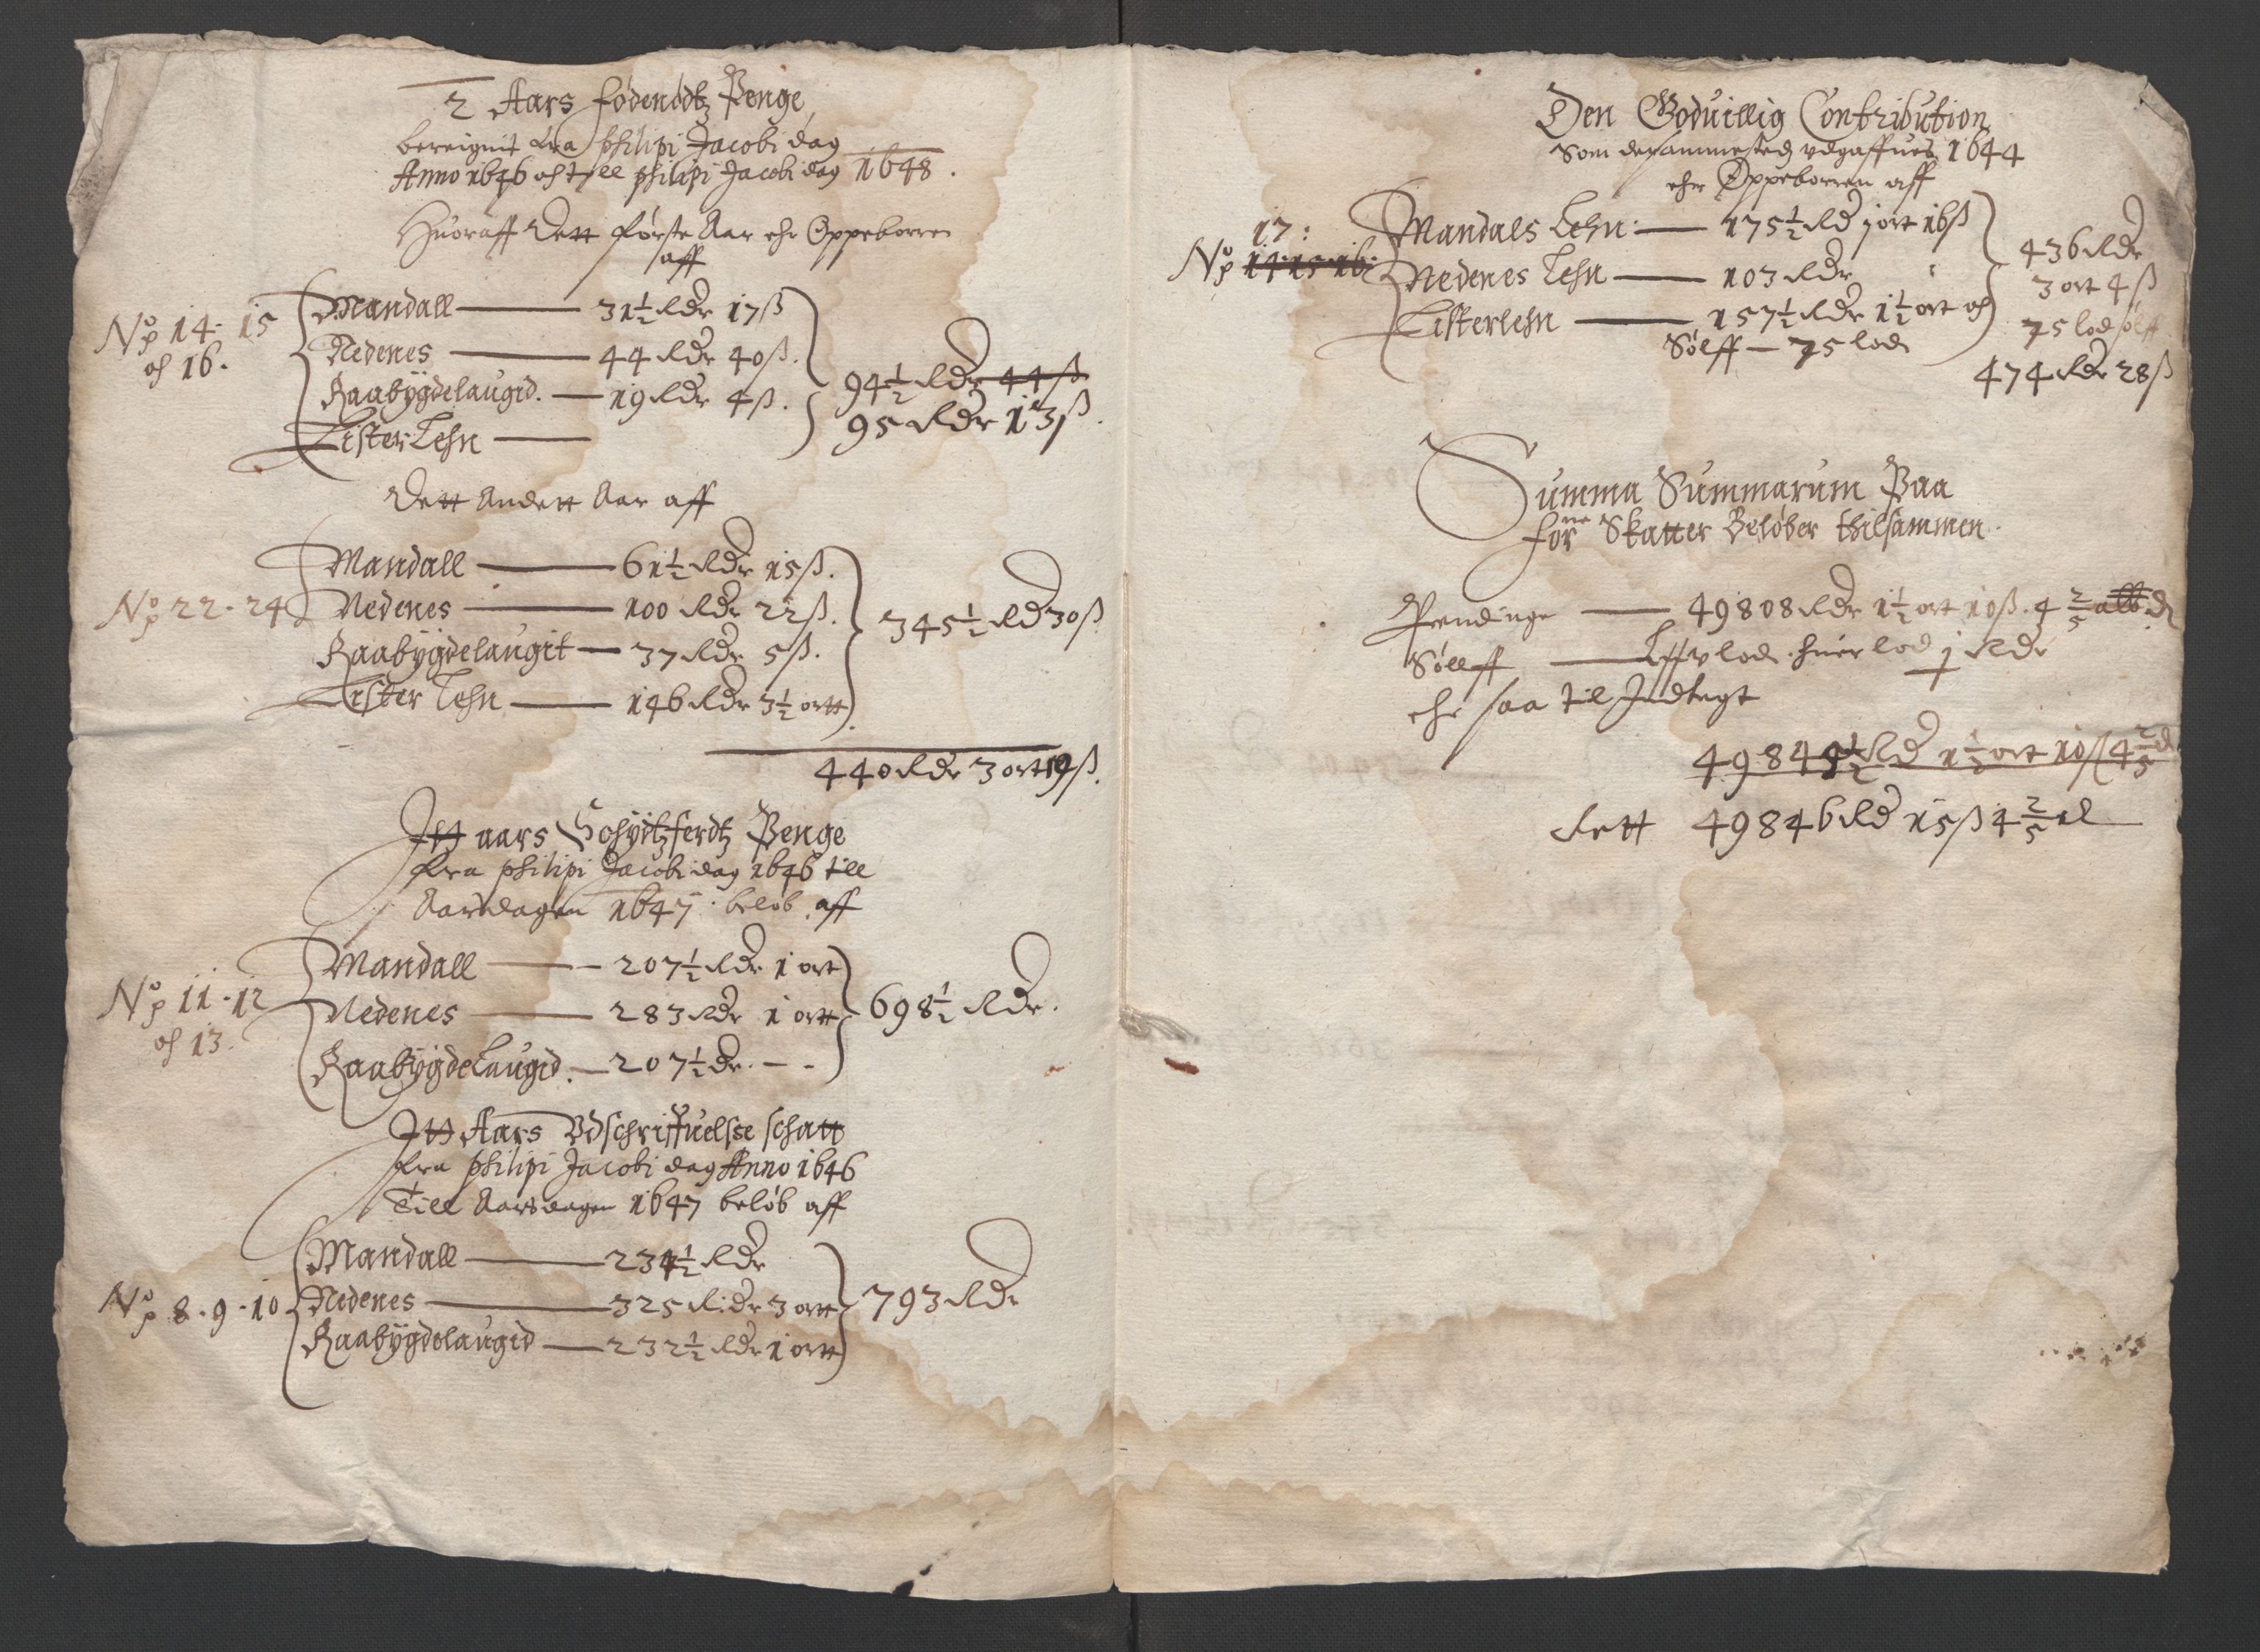 2 Aars fødenødtz Penge
bereignit fra philipi Jacobi dag
Anno 1646 och till philipi Jacobi dag 1648.
Huoraff dett første Aar ehr Oppeborren
aff
No 14 - 15
och 16.
Mandall — 31½ Rdr 17 ß
Nedenes — 44 Rdr 40 ß.
Raabygdelaugid. — 19 Rdr 4 ß.
Lister Lehn —
94½ Rdr 44 ß
95 Rdr 13 ß.
Dett Andett Aar aff
No 22 - 24
Mandall — 61½ Rdr 15 ß.
Nedenes — 100 Rdr 22 ß.
Raabygdelaugit — 37 Rdr 5 ß.
Lister Lehn — 146 Rdr 3½ ortt
345½ Rd 30 ß
440 Rdr 3 ort 19 ß.
Itt aars Schydtzferdtz Penge
fra philipi Jacobi dag 1646 till
Aarsdagen 1647 beløb aff
No 11 - 12
och 13.
Mandall — 207½ Rdr 1 ort
Nedenes — 283 Rdr 1 ortt
Raabygdelaugid. — 207½ dr. - -
698½ Rdr.
Itt Aars Vdschriffuelsse schatt
fra philipi Jacobi dag Anno 1646
Till Aarsdagen 1647 beløb aff
No 8 - 9 - 10
Mandall — 234½ Rdr
Nedenes — 325 Rdr 3 ortt
Raabygdelaugid — 232½ Rdr 1 ortt
793 Rdr
Den Goduillig Contribution
Som dersammested vdgaffues 1644
ehr Oppeborren aff
17:
No 14 15 16:
Mandals Lehn: — 175½ Rd j ort 16 ß
Nedenes Lehn — 103 Rdr
Listerlehn — 157½ Rdr 1½ ort och
Sølff — 75 lod
436 Rdr
3 ort 4 ß
75 lod sølff
474 Rdr 28 ß
Summa Summarum Paa
forne Skatter Beløber thilsammen.
Pendinge — 49808 Rdr 1½ ort 10 ß. 4 2/5 alb d
Sølff — Lxxv lod. huer lod j Rdr
ehr saa til Indtegt
49849½ Rd 1½ ort 10 ß 4 2/5 d
Rett 49846 Rd 15 ß 4 2/5 d